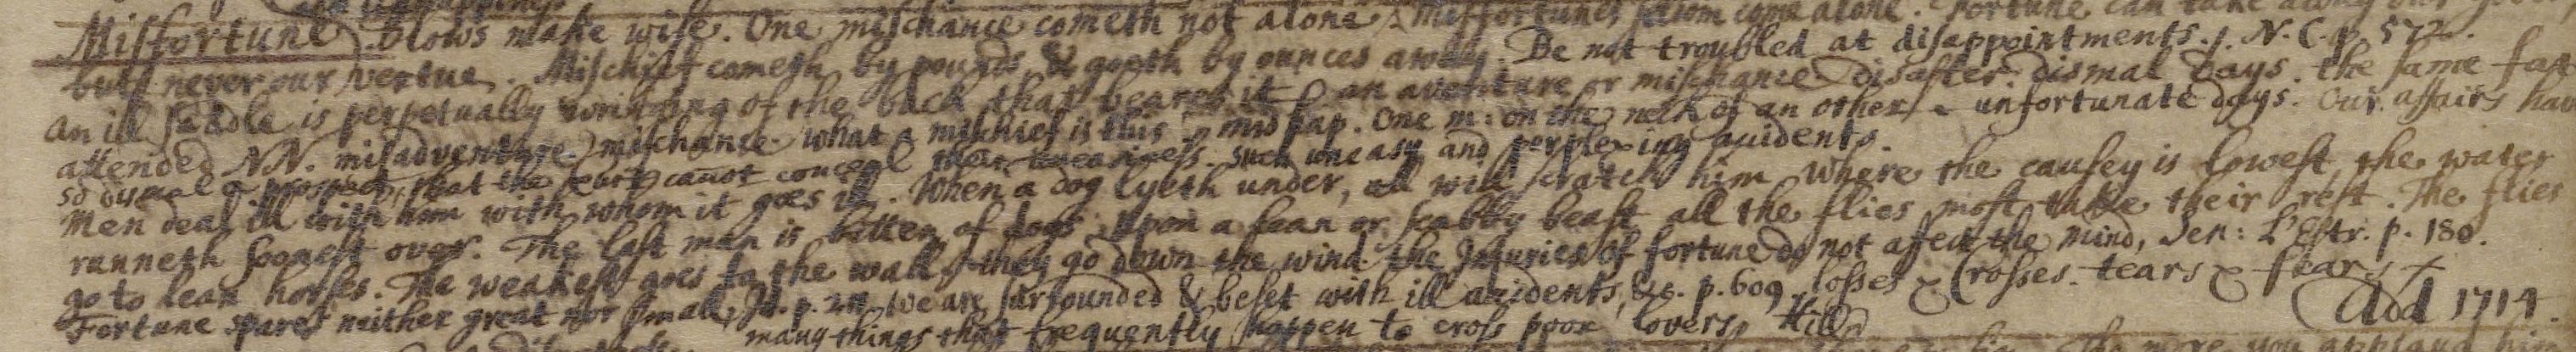 Misfortune. blows make wise. One mischance cometh not alone. Misfortunes seldom come alone. Fortune can take along our
but never our vertue. Mischief cometh by pounds & goeth by ounces away. Be not troubled at disappointments. N. C. p. 572.
an ill saddle is perpetually wringing of the back that beares it an aventure or mischance Disaster. dismal days. the same
attended NN. misadventure mischance. what a mischief is this mishap. One m: on the neck of an other unfortunate days. Our affairs
so dismal a prospect, that the cannot conceal their uneasiness. such uneasy and perplexing accidents.
Men deal ill with him with whom it goes ill. When a dog lyeth under, all will scratch him Where the causey is lowest the water
runneth soonest over. The last man is bitten of dogs; upon a lean or scabby beast all the flies most take their rest. The flies
go to lean horses. The weakest goes to the wall they go down the wind the Injuries of fortune do not affect the mind, Sen: L'Estr. p. 180.
Fortune spares neither great nor small, p. We are surrounded & beset with ill accidents, &c. p. 609 losses & Crosses. tears & fears
many things that frequently happen to cross poor lovers, Add 1714.